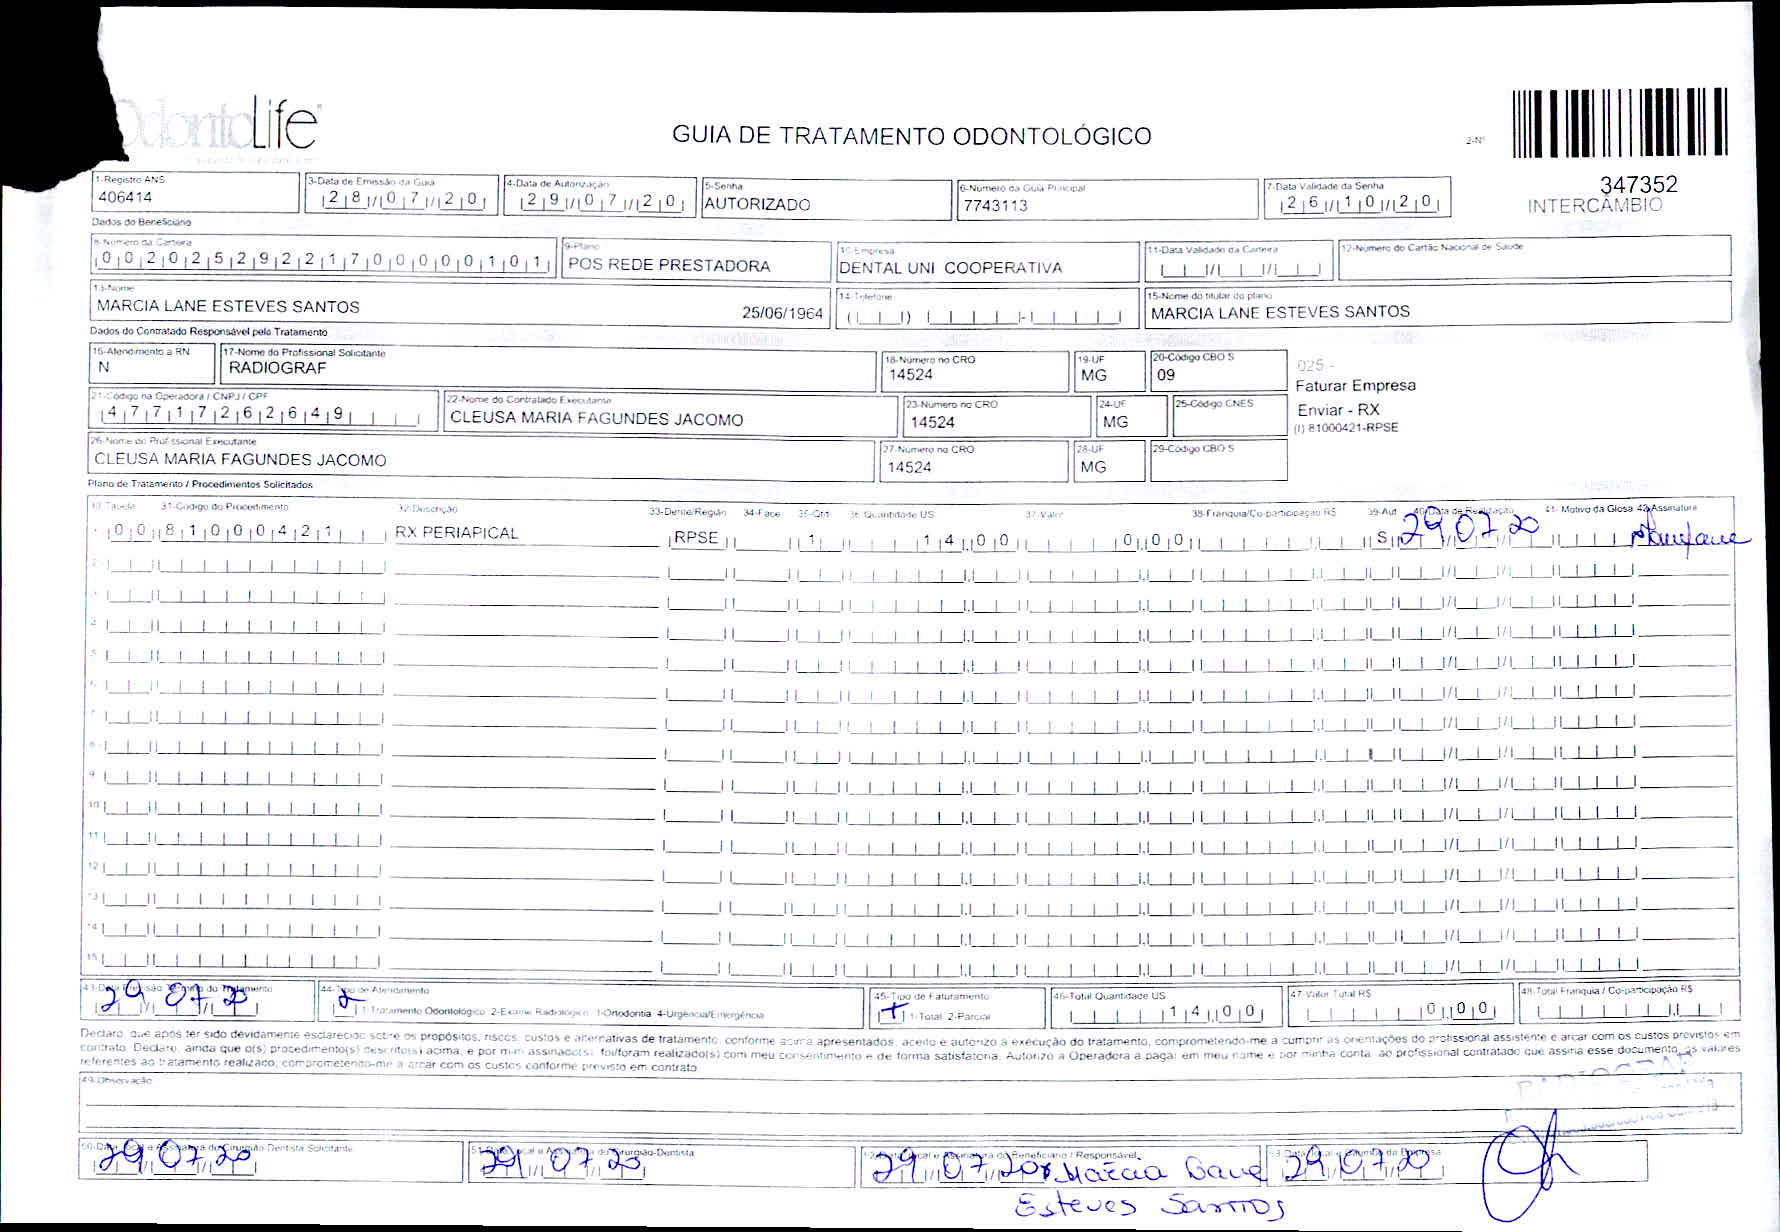 OdontoLife
GUIA DE TRATAMENTO ODONTOLÓGICO
2-Nº
347352
INTERCÂMBIO
1-Registro ANS
406414
3-Data de Emissão da Guia
28/07/20
4-Data de Autorização
29/07/20
5-Senha
AUTORIZADO
6-Número da Guia Principal
7743113
7-Data Validade da Senha
26/10/20
Dados do Beneficiário
8-Número da Carteira
00202529221700000101
9-Plano
POS REDE PRESTADORA
10-Empresa
DENTAL UNI COOPERATIVA
11-Data Validade da Carteira
12-Número do Cartão Nacional de Saúde
13-Nome
MARCIA LANE ESTEVES SANTOS 25/06/1964
14-Telefone
15-Nome do titular do plano
MARCIA LANE ESTEVES SANTOS
Dados do Contratado Responsável pelo Tratamento
16-Atendimento a RN
N
17-Nome do Profissional Solicitante
RADIOGRAF
18-Número no CRO
14524
19-UF
MG
20-Código CBO S
09
025 -
Faturar Empresa
Enviar - RX
(I) 81000421-RPSE
21-Código na Operadora / CNPJ / CPF
47717262649
22-Nome do Contratado Executante
CLEUSA MARIA FAGUNDES JACOMO
23-Número no CRO
14524
24-UF
MG
25-Código CNES
26-Nome do Profissional Executante
CLEUSA MARIA FAGUNDES JACOMO
27-Número no CRO
14524
28-UF
MG
29-Código CBO S
Plano de Tratamento / Procedimentos Solicitados
30-Tabela 31-Código do Procedimento 32-Descrição 33-Dente/Região 34-Face 35-Qtd 36-Quantidade US 37-Valor 38-Franquia/Co-participação R$ 39-Aut 40-Data de Realização 41-Motivo da Glosa 42-Assinatura
00 81000421 RX PERIAPICAL RPSE 1 14,00 0,00 S 29 07 20
2
3
4
5
6
7
8
9
10
11
12
13
14
15
43-Data Previsão Término do Tratamento
29 07 20
44-Tipo de Atendimento
2 1-Tratamento Odontológico 2-Exame Radiológico 1-Ortodontia 4-Urgência/Emergência
45-Tipo de Faturamento
1-Total 2-Parcial
46-Total Quantidade US
14,00
47-Valor Total R$
0,00
48-Total Franquia / Co-participação R$
Declaro, que após ter sido devidamente esclarecido sobre os propósitos, riscos, custos e alternativas de tratamento, conforme acima apresentados, aceito e autorizo a execução do tratamento, comprometendo-me a cumprir as orientações do profissional assistente e arcar com os custos previstos em
contrato. Declaro, ainda que o(s) procedimento(s) descrito(s) acima, e por mim assinado(s), foi/foram realizado(s) com meu consentimento e de forma satisfatória. Autorizo a Operadora a pagar em meu nome e por minha conta, ao profissional contratado que assina esse documento, os valores
referentes ao tratamento realizado, comprometendo-me a arcar com os custos conforme previsto em contrato.
49-Observação
RADIOGRAF
50-Data, local e Assinatura do Cirurgião Dentista Solicitante
29 07 20
51-Data, local e Assinatura do Cirurgião-Dentista
29 07 20
52-Data, local e Assinatura do Beneficiário / Responsável
29 07 20 x Marcia Lane
Esteves Santos
53-Data, local e Carimbo da Empresa
29 07 20